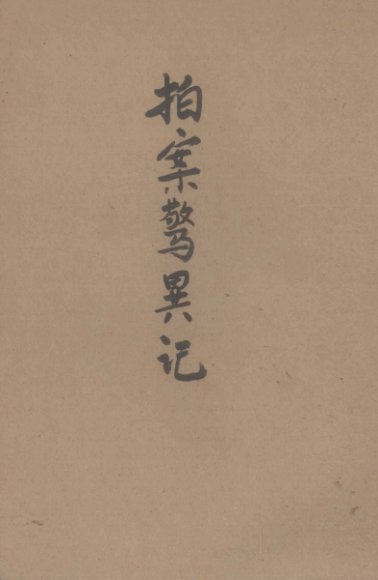 拍案驚異记